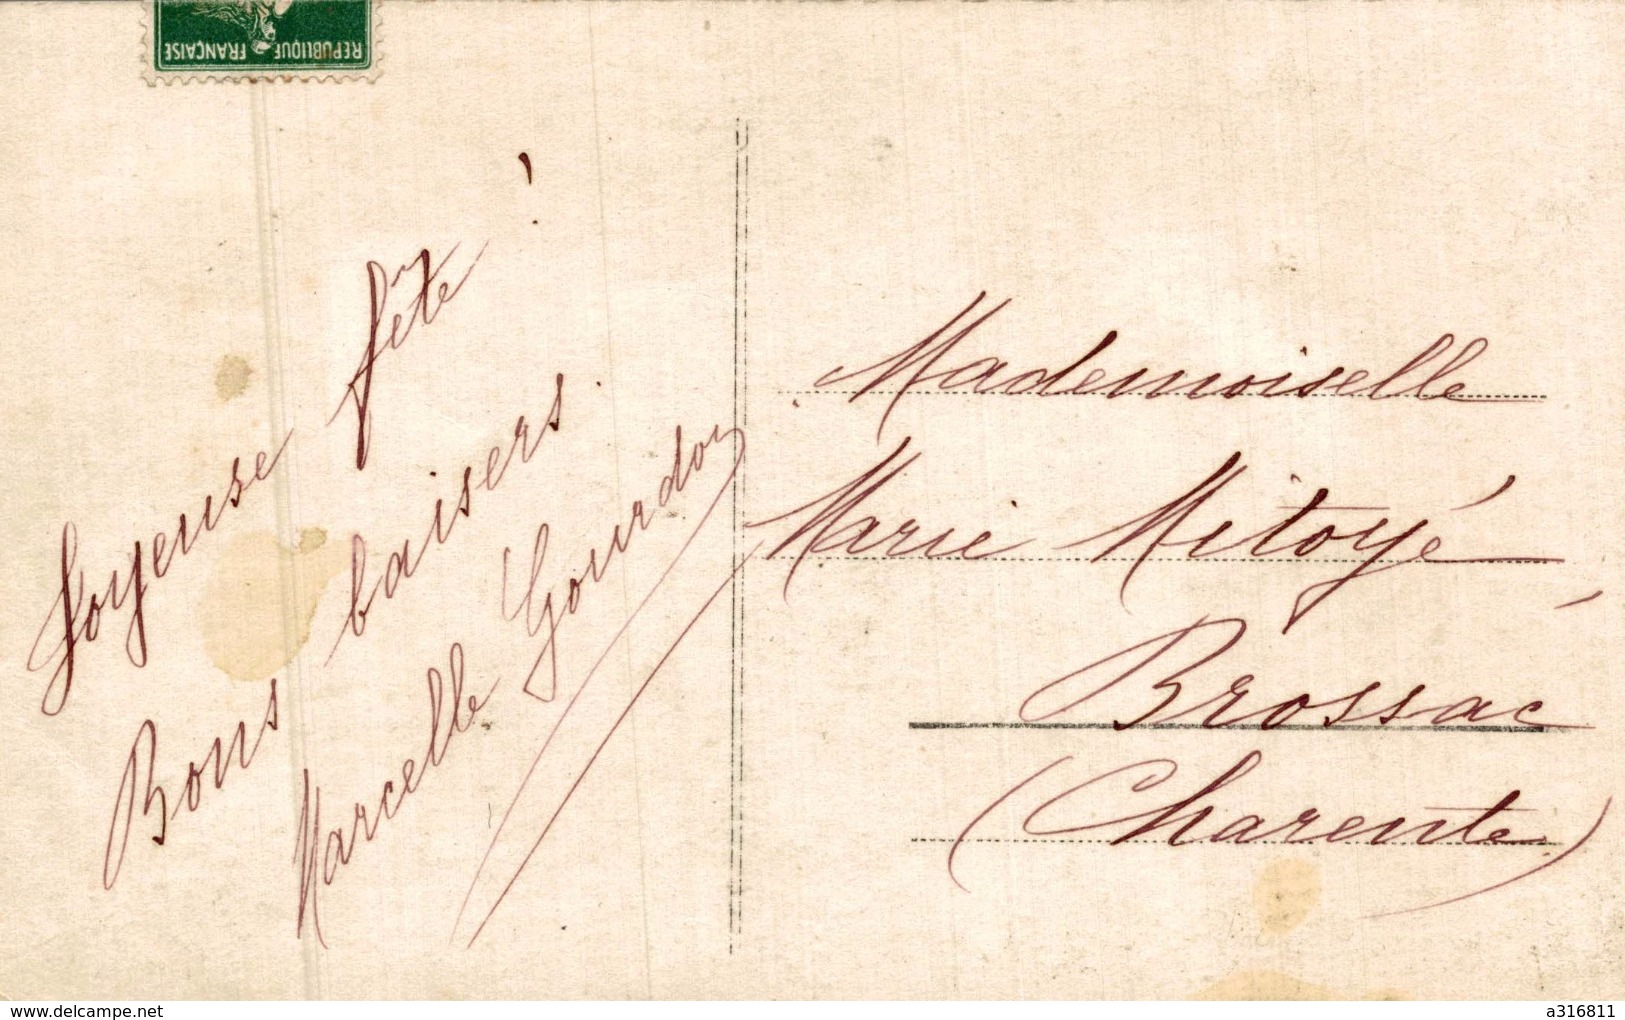 REPUBLIQUE FRANÇAISE
Joyeuse fête !
Bons baisers.
Marcelle Gourdon
Mademoiselle
Marie Mitoyé
Brossac
(Charente)
www.delcampe.net
a316811